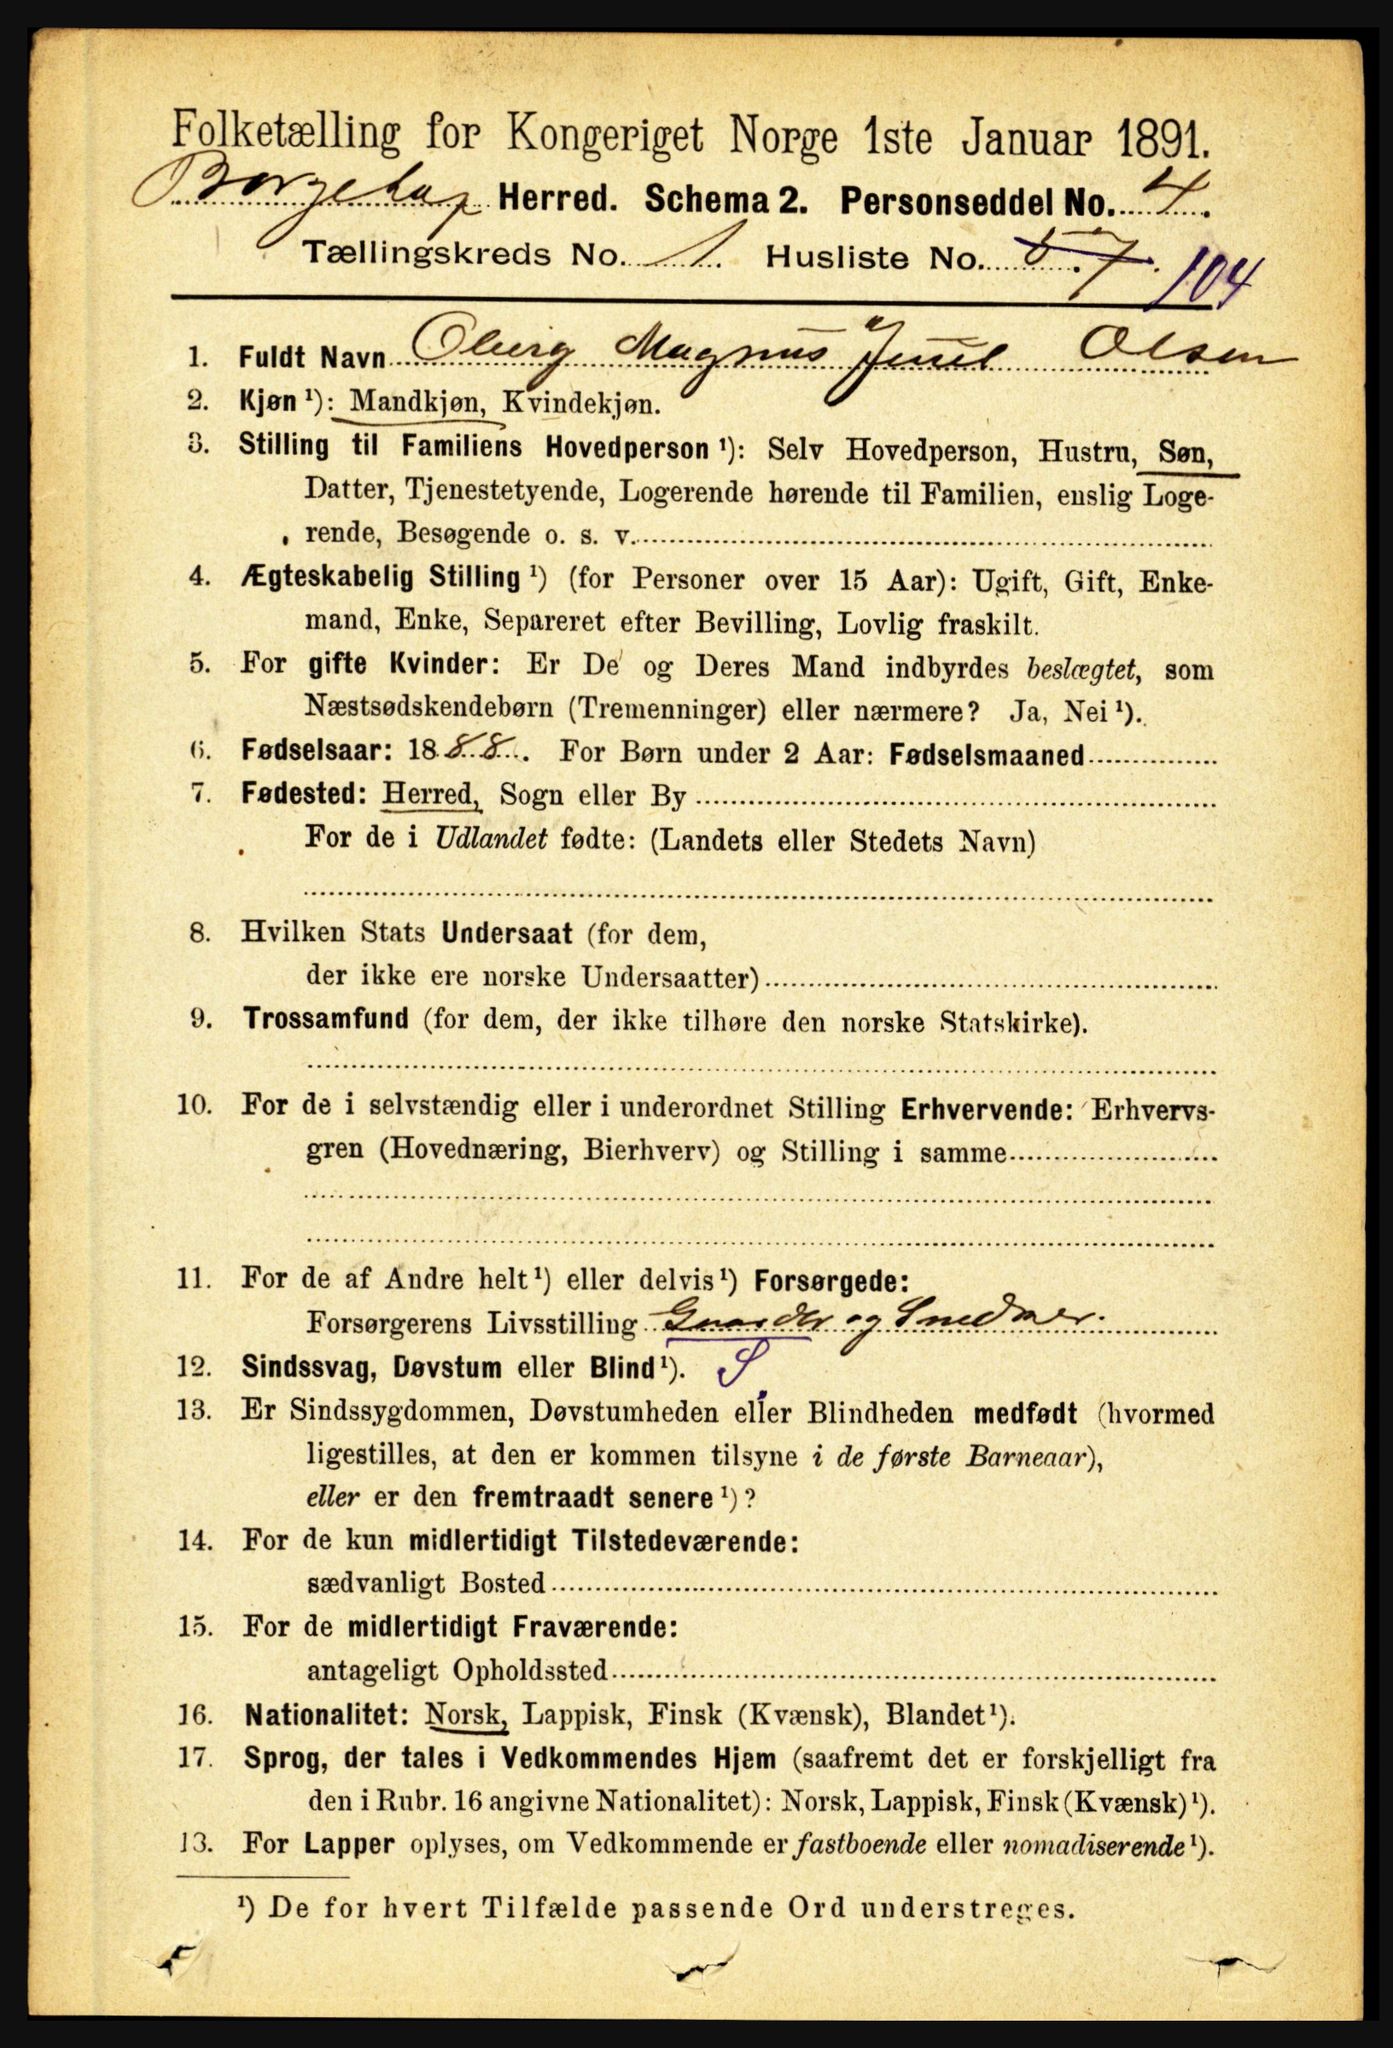 Folketælling for Kongeriget Norge 1ste Januar 1891.
Herred. Schema 2. Personseddel No. 4.
Tællingskreds No. 1. Husliste No. 57. 104
1. Fuldt Navn Magnus Juul Olsen
2. Kjøn ¹): Mandkjøn, Kvindekjøn.
3. Stilling til Familiens Hovedperson ¹): Selv Hovedperson, Hustru, Søn,
Datter, Tjenestetyende, Logerende hørende til Familien, enslig Loge-
rende, Besøgende o. s. v.
4. Ægteskabelig Stilling ¹) (for Personer over 15 Aar): Ugift, Gift, Enke-
mand, Enke, Separeret efter Bevilling, Lovlig fraskilt.
5. For gifte Kvinder: Er De og Deres Mand indbyrdes beslægtet, som
Næstsødskendebørn (Tremenninger) eller nærmere? Ja, Nei ¹).
6. Fødselsaar: 1888. For Børn under 2 Aar: Fødselsmaaned
7. Fødested: Herred, Sogn eller By
For de i Udlandet fødte: (Landets eller Stedets Navn)
8. Hvilken Stats Undersaat (for dem,
der ikke ere norske Undersaatter)
9. Trossamfund (for dem, der ikke tilhøre den norske Statskirke).
10. For de i selvstændig eller i underordnet Stilling Erhvervende: Erhvervs-
gren (Hovednæring, Bierhverv) og Stilling i samme
11. For de af Andre helt ¹) eller delvis ¹) Forsørgede:
Forsørgerens Livsstilling Gaardbr og Snedker.
12. Sindssvag, Døvstum eller Blind ¹). S
13. Er Sindssygdommen, Døvstumheden eller Blindheden medfødt (hvormed
ligestilles, at den er kommen tilsyne i de første Barneaar),
eller er den fremtraadt senere ¹)?
14. For de kun midlertidigt Tilstedeværende:
sædvanligt Bosted
15. For de midlertidigt Fraværende:
antageligt Opholdssted
16. Nationalitet: Norsk, Lappisk, Finsk (Kvænsk), Blandet ¹).
17. Sprog, der tales i Vedkommendes Hjem (saafremt det er forskjelligt fra
den i Rubr. 16 angivne Nationalitet): Norsk, Lappisk, Finsk (Kvænsk) ¹).
13. For Lapper oplyses, om Vedkommende er fastboende eller nomadiserende ¹).
¹) De for hvert Tilfælde passende Ord understreges.